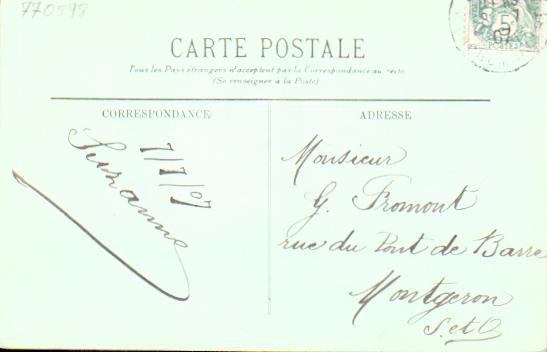 770598
5
POSTES
CARTE POSTALE
Tous les Pays étrangers n'acceptent pas la Correspondance au recto.
(Se renseigner à la Poste)
CORRESPONDANCE
7/7/07
Suzanne
ADRESSE
Monsieur
G. Fromont
rue du Pont de Barre
Montgeron
S. et O